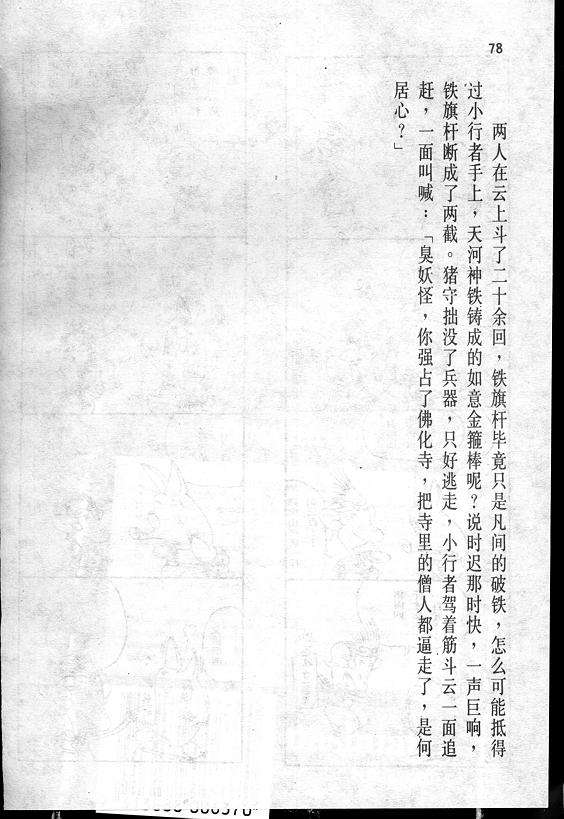 78
两人在云上斗了二十余回，铁旗杆毕竟只是凡间的破铁，怎么可能抵得
过小行者手上，天河神铁铸成的如意金箍棒呢？说时迟那时快，一声巨响，
铁旗杆断成了两截。猪守拙没了兵器，只好逃走，小行者驾着筋斗云一面追
赶，一面叫喊：「臭妖怪，你强占了佛化寺，把寺里的僧人都逼走了，是何
居心？」